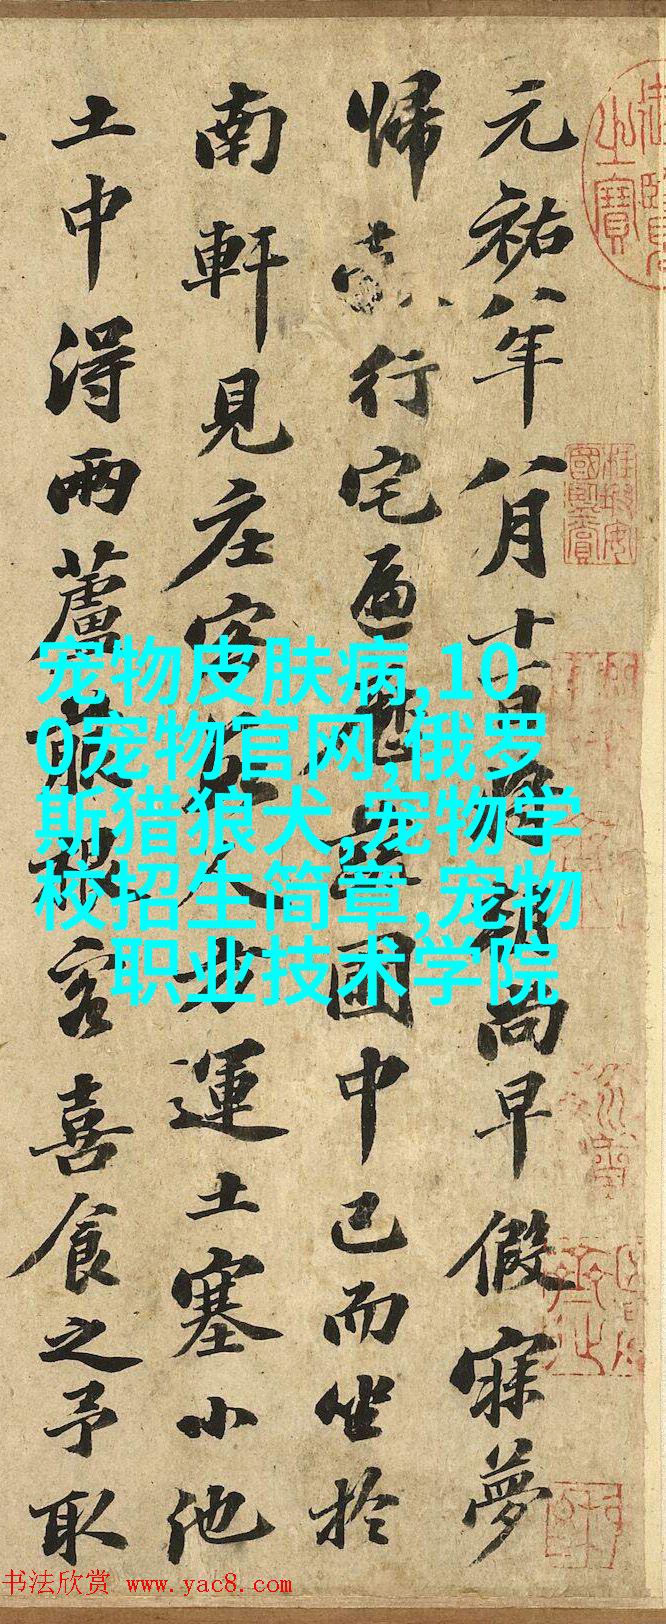 元祐八年八月十一日將朝尚早假寐夢
歸行宅遍歷蔬圃中已而坐於
南軒見庄客數人方運土塞小池
土中得兩蘆菔根客喜食之予取
宠物皮肤病,10
0宠物官网,俄罗
斯猎狼犬,宠物学
校招生简章,宠物
职业技术学院
书法欣赏 www.yac8.com